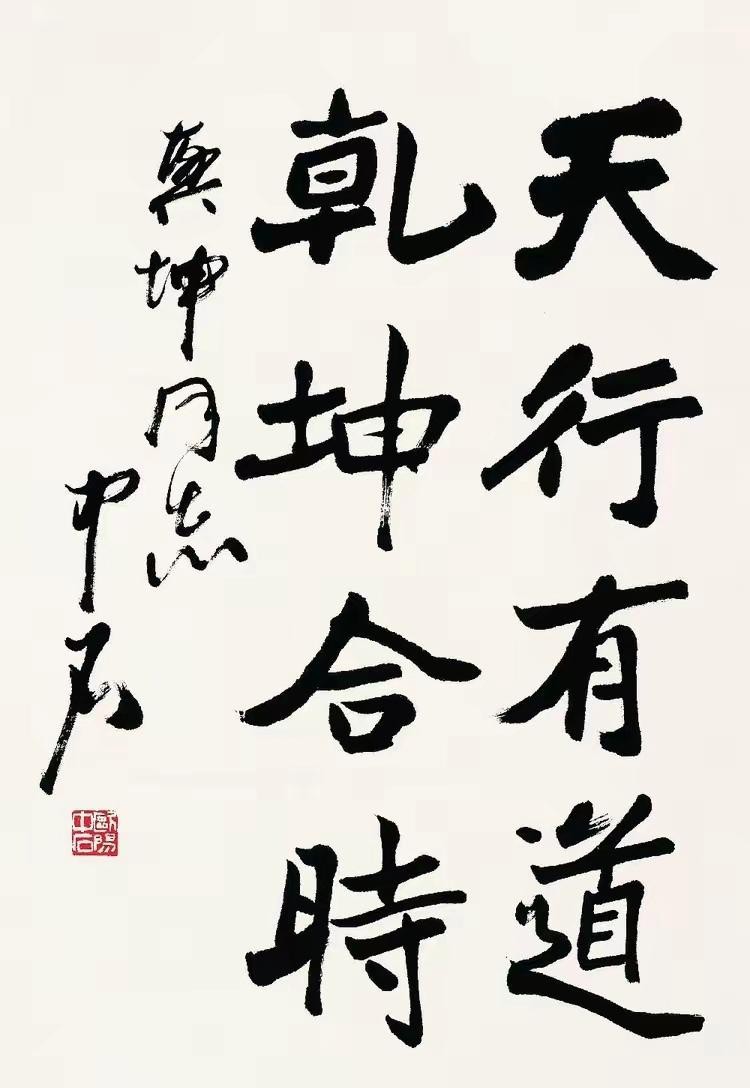 天行有道
乾坤合時
興坤同志
中石
歐陽中石